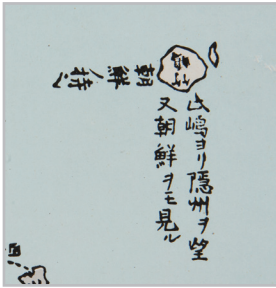 此嶋ヨリ隠州ヲ望
又朝鮮ヲモ見ル
朝鮮ノ持